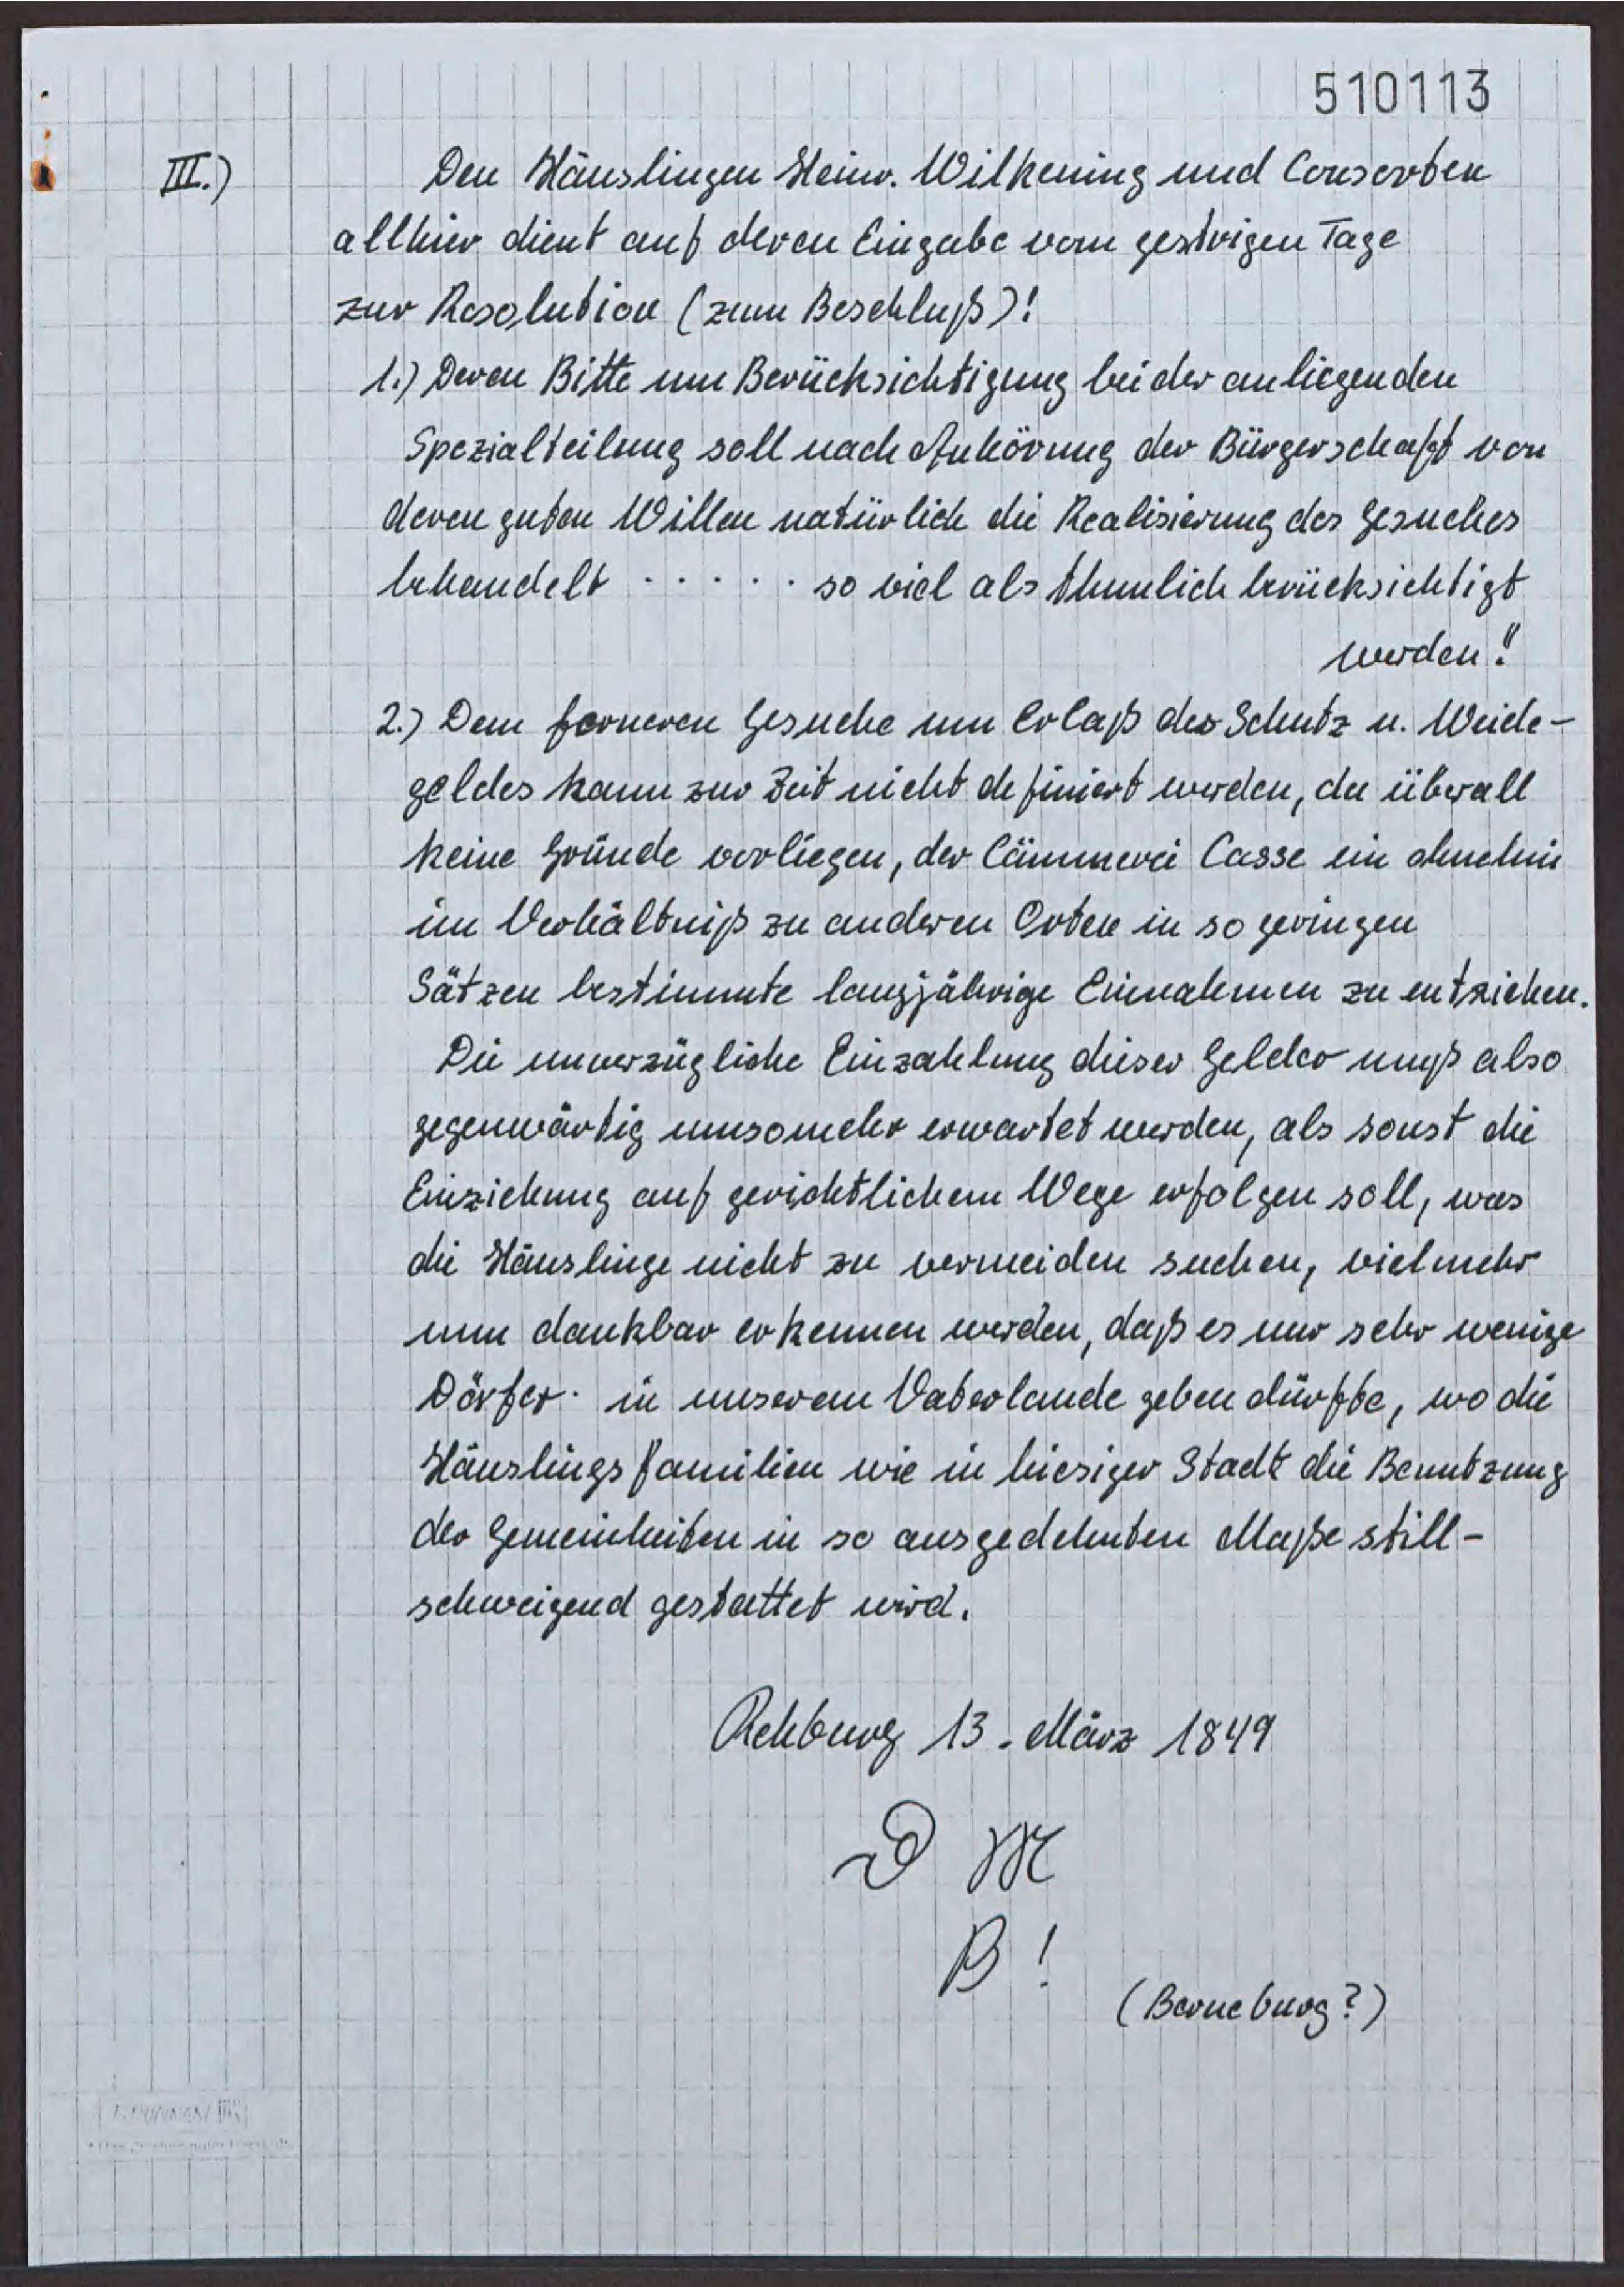 510113
III.) Den Häuslingen Heinr. Wilkening und Consorten
allhier dient auf deren Eingabe vom gestrigen Tage
zur Resolution (zum Beschluß)!
1.) Deren Bitte um Berücksichtigung bei der anliegenden
Spezialteilung soll nach Anhörung der Bürgerschaft von
deren guten Willen natürlich die Realisierung des Gesuches
behandelt . . . . . . so viel als thunlich berücksichtigt
werden!!
2.) Dem ferneren Gesuche um Erlaß des Schutz u. Weide-
geldes kann zur Zeit nicht definiert werden, da überall
keine Gründe vorliegen, der Cämmerei Casse ein ohnehin
im Verhältniß zu anderen Orten in so geringen
Sätzen bestimmte langjährige Einnahmen zu entziehen.
Die unverzügliche Einzahlung dieser Gelder muß also
gegenwärtig umsomehr erwartet werden, als sonst die
Einziehung auf gerichtlichem Wege erfolgen soll, was
die Häuslinge nicht zu vermeiden suchen, vielmehr
nun dankbar erkennen werden, daß es nur sehr wenige
Dörfer in unserem Vaterlande geben dürfte, wo die
Häuslingsfamilien wie in hiesiger Stadt die Benutzung
der Gemeinheiten in so ausgedehnten Maße still-
schweigend gestattet wird.
Rehburg 13. März 1849
D M
B!
(Barneburg?)